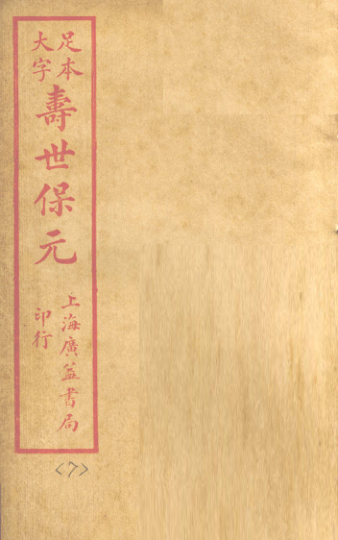 足本
大字
壽世保元
上海廣益書局
印行
<7>